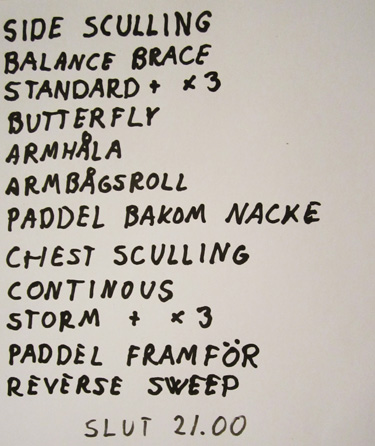 SIDE SCULLING
BALANCE BRACE
STANDARD + x 3
BUTTERFLY
ARMHÅLA
ARMBÅGSROLL
PADDEL BAKOM NACKE
CHEST SCULLING
CONTINOUS
STORM + x 3
PADDEL FRAMFÖR
REVERSE SWEEP
SLUT 21.00